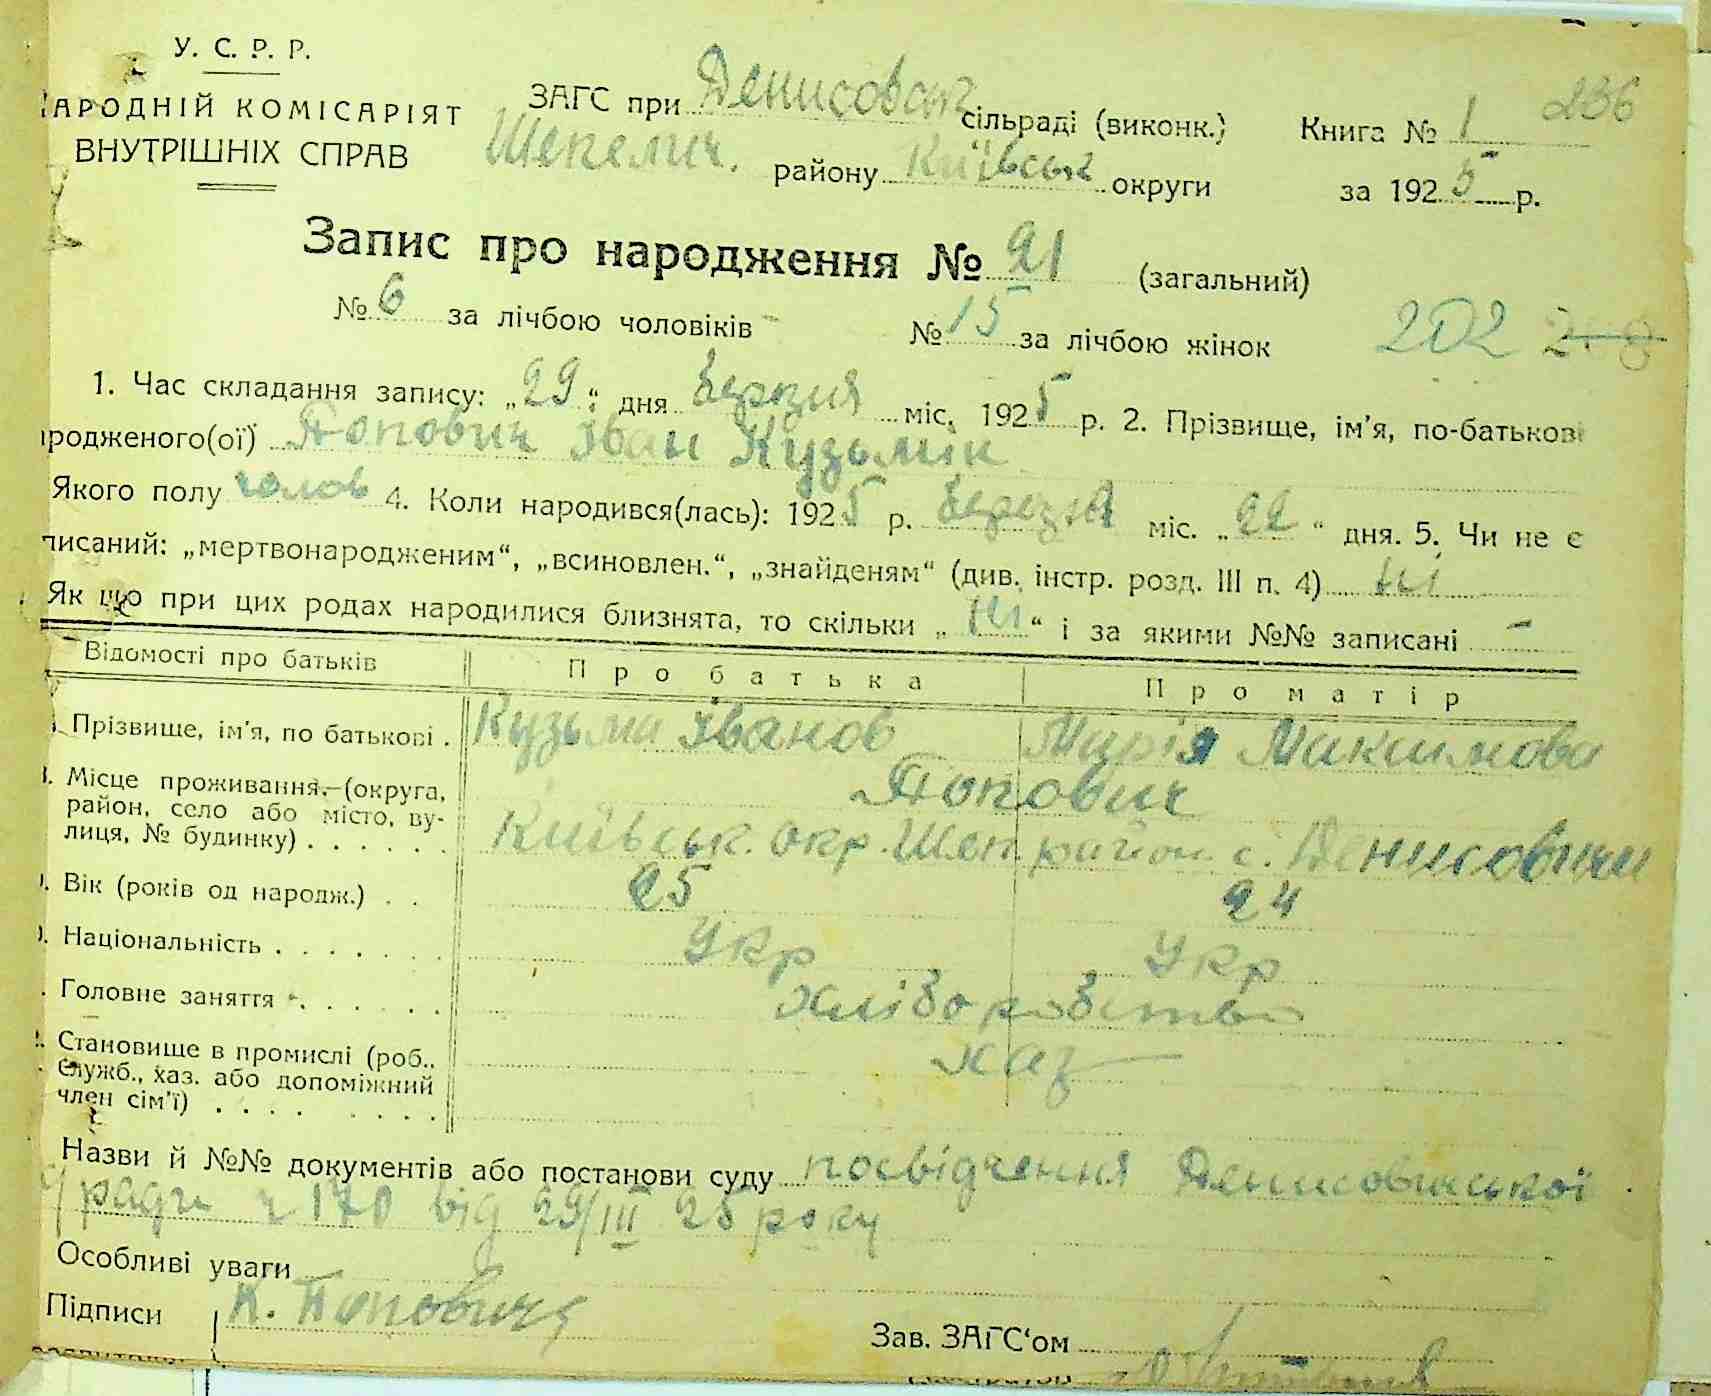 У. С. Р. Р.
АРОДНІЙ КОМІСАРІЯТ
ВНУТРІШНІХ СПРАВ
ЗАГС при Денисовськ сільраді (виконк.)
Шепелич. району Київськ округи
Книга № 1
236
за 1925 р.
Запис про народження № 21 (загальний)
№ 6 за лічбою чоловіків № 15 за лічбою жінок 202
1. Час складання запису: „29“ дня березня міс. 1925 р. 2. Прізвище, ім'я, по-батькові
родженого(ої) Попович Іван Кузьмік
Якого полу чолов 4. Коли народився(лась): 1925 р. березня міс. „22“ дня. 5. Чи не є
писаний: „мертвонародженим“, „всиновлен.“, „знайденям“ (див. інстр. розд. III п. 4) ні
Як що при цих родах народилися близнята, то скільки „ні“ і за якими №№ записані –
Відомості про батьків Про батька Про матір
Прізвище, ім'я, по батькові . Кузьма Іванов Марія Максимова
Попович
Місце проживання.—(округа,
район, село або місто, ву-
лиця, № будинку) . . . . . . Київськ. окр. Шеп. район. с. Денисовичи
Вік (років од народж.) . . 25 24
Національність . . . . . . . Укр Укр
Головне заняття . . . . . . Хліборобство
Становище в промислі (роб.,
служб., хаз. або допоміжний
член сім'ї) . . . . . . . . хаз
Назви й №№ документів або постанови суду посвідчення Денисовицької
с/ради ч 170 від 29/III 25 року
Особливі уваги
Підписи К. Попович
Зав. ЗАГС'ом